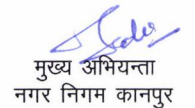 मुख्य अभियन्ता
नगर निगम कानपुर